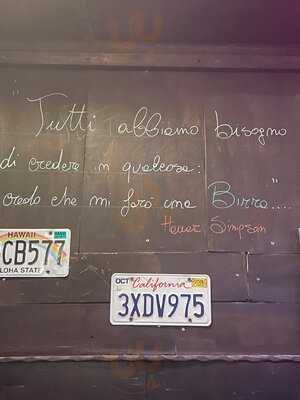 Tutti abbiamo bisogno
di credere in qualcosa:
credo che mi farò una Birra....
Homer Simpson
HAWAII
CB577
ALOHA STATE
OCT California
3XDV975